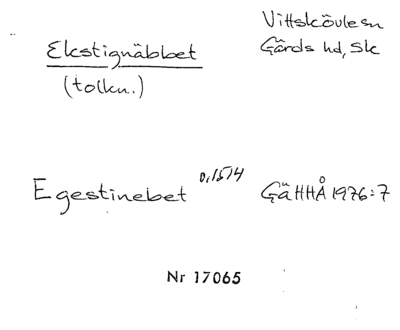 Vittskövle sn
Ekstignäbbet
Gärds hd, Sk
(tolkn.)
Egestinebet o. 1574 GäHHÅ 1976:7
Nr 17065